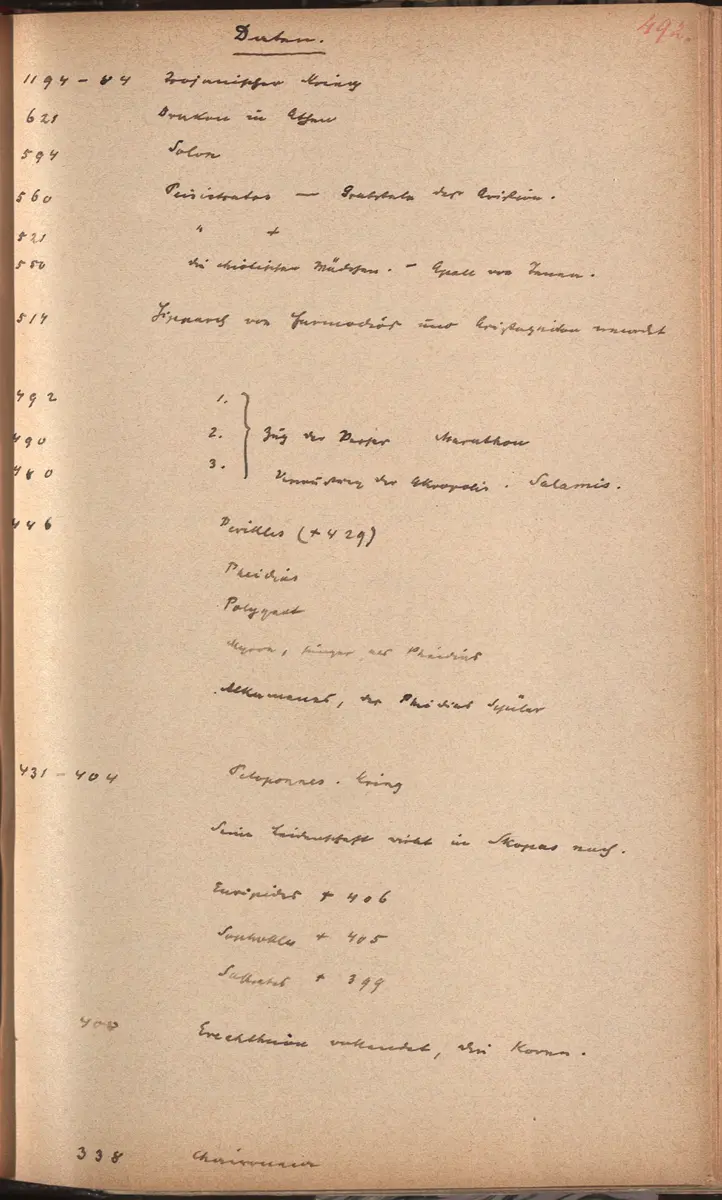 492.
Daten.
1194 – 84 Trojanischer Krieg
621 Drakon in Athen
594 Solon
560 Peisistratos — Grabstele des Aristion.
521 " +
550 die chiotischen Mädchen. – Apoll von Tenea.
514 Hipparch von Harmodios und Aristogeiton ermordet
492 1.
490 2. Zug der Perser Marathon
480 3. Verwüstung der Akropolis. Salamis.
446 Perikles (+ 429)
Pheidias
Polygnot
Myron, jünger als Pheidias
Alkamenes, des Pheidias Schüler
431 – 404 Peloponnes. Krieg
Seine Leidenschaft wirkt in Skopas nach.
Euripides + 406
Sophokles + 405
Sokrates + 399
400 Erechtheion vollendet, die Koren.
338 Chaironeia